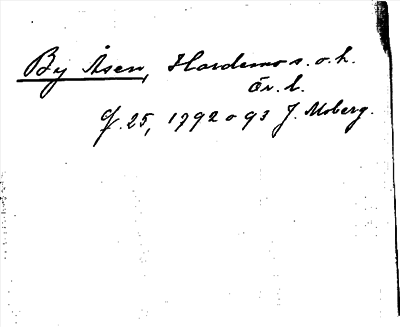 By Åsen, Hardemo s. o. h.
Ör. l.
f. 25, 1792 o 93 J. Moberg.